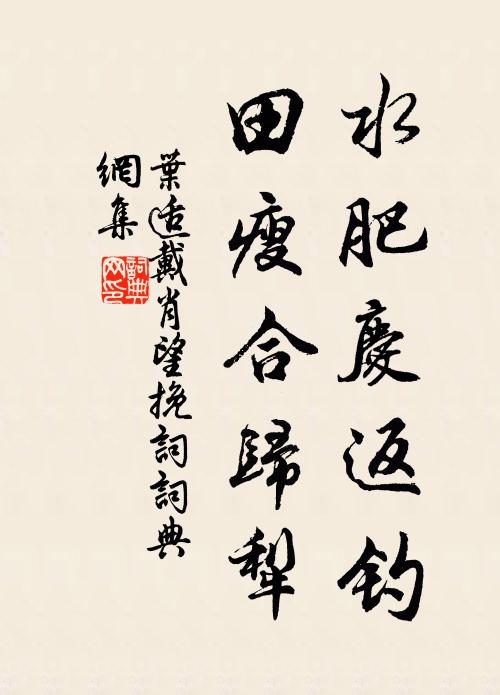 水肥慶返釣
田瘦合歸犁
葉适戴肖望挽詞詞典
網集
詞典
网印